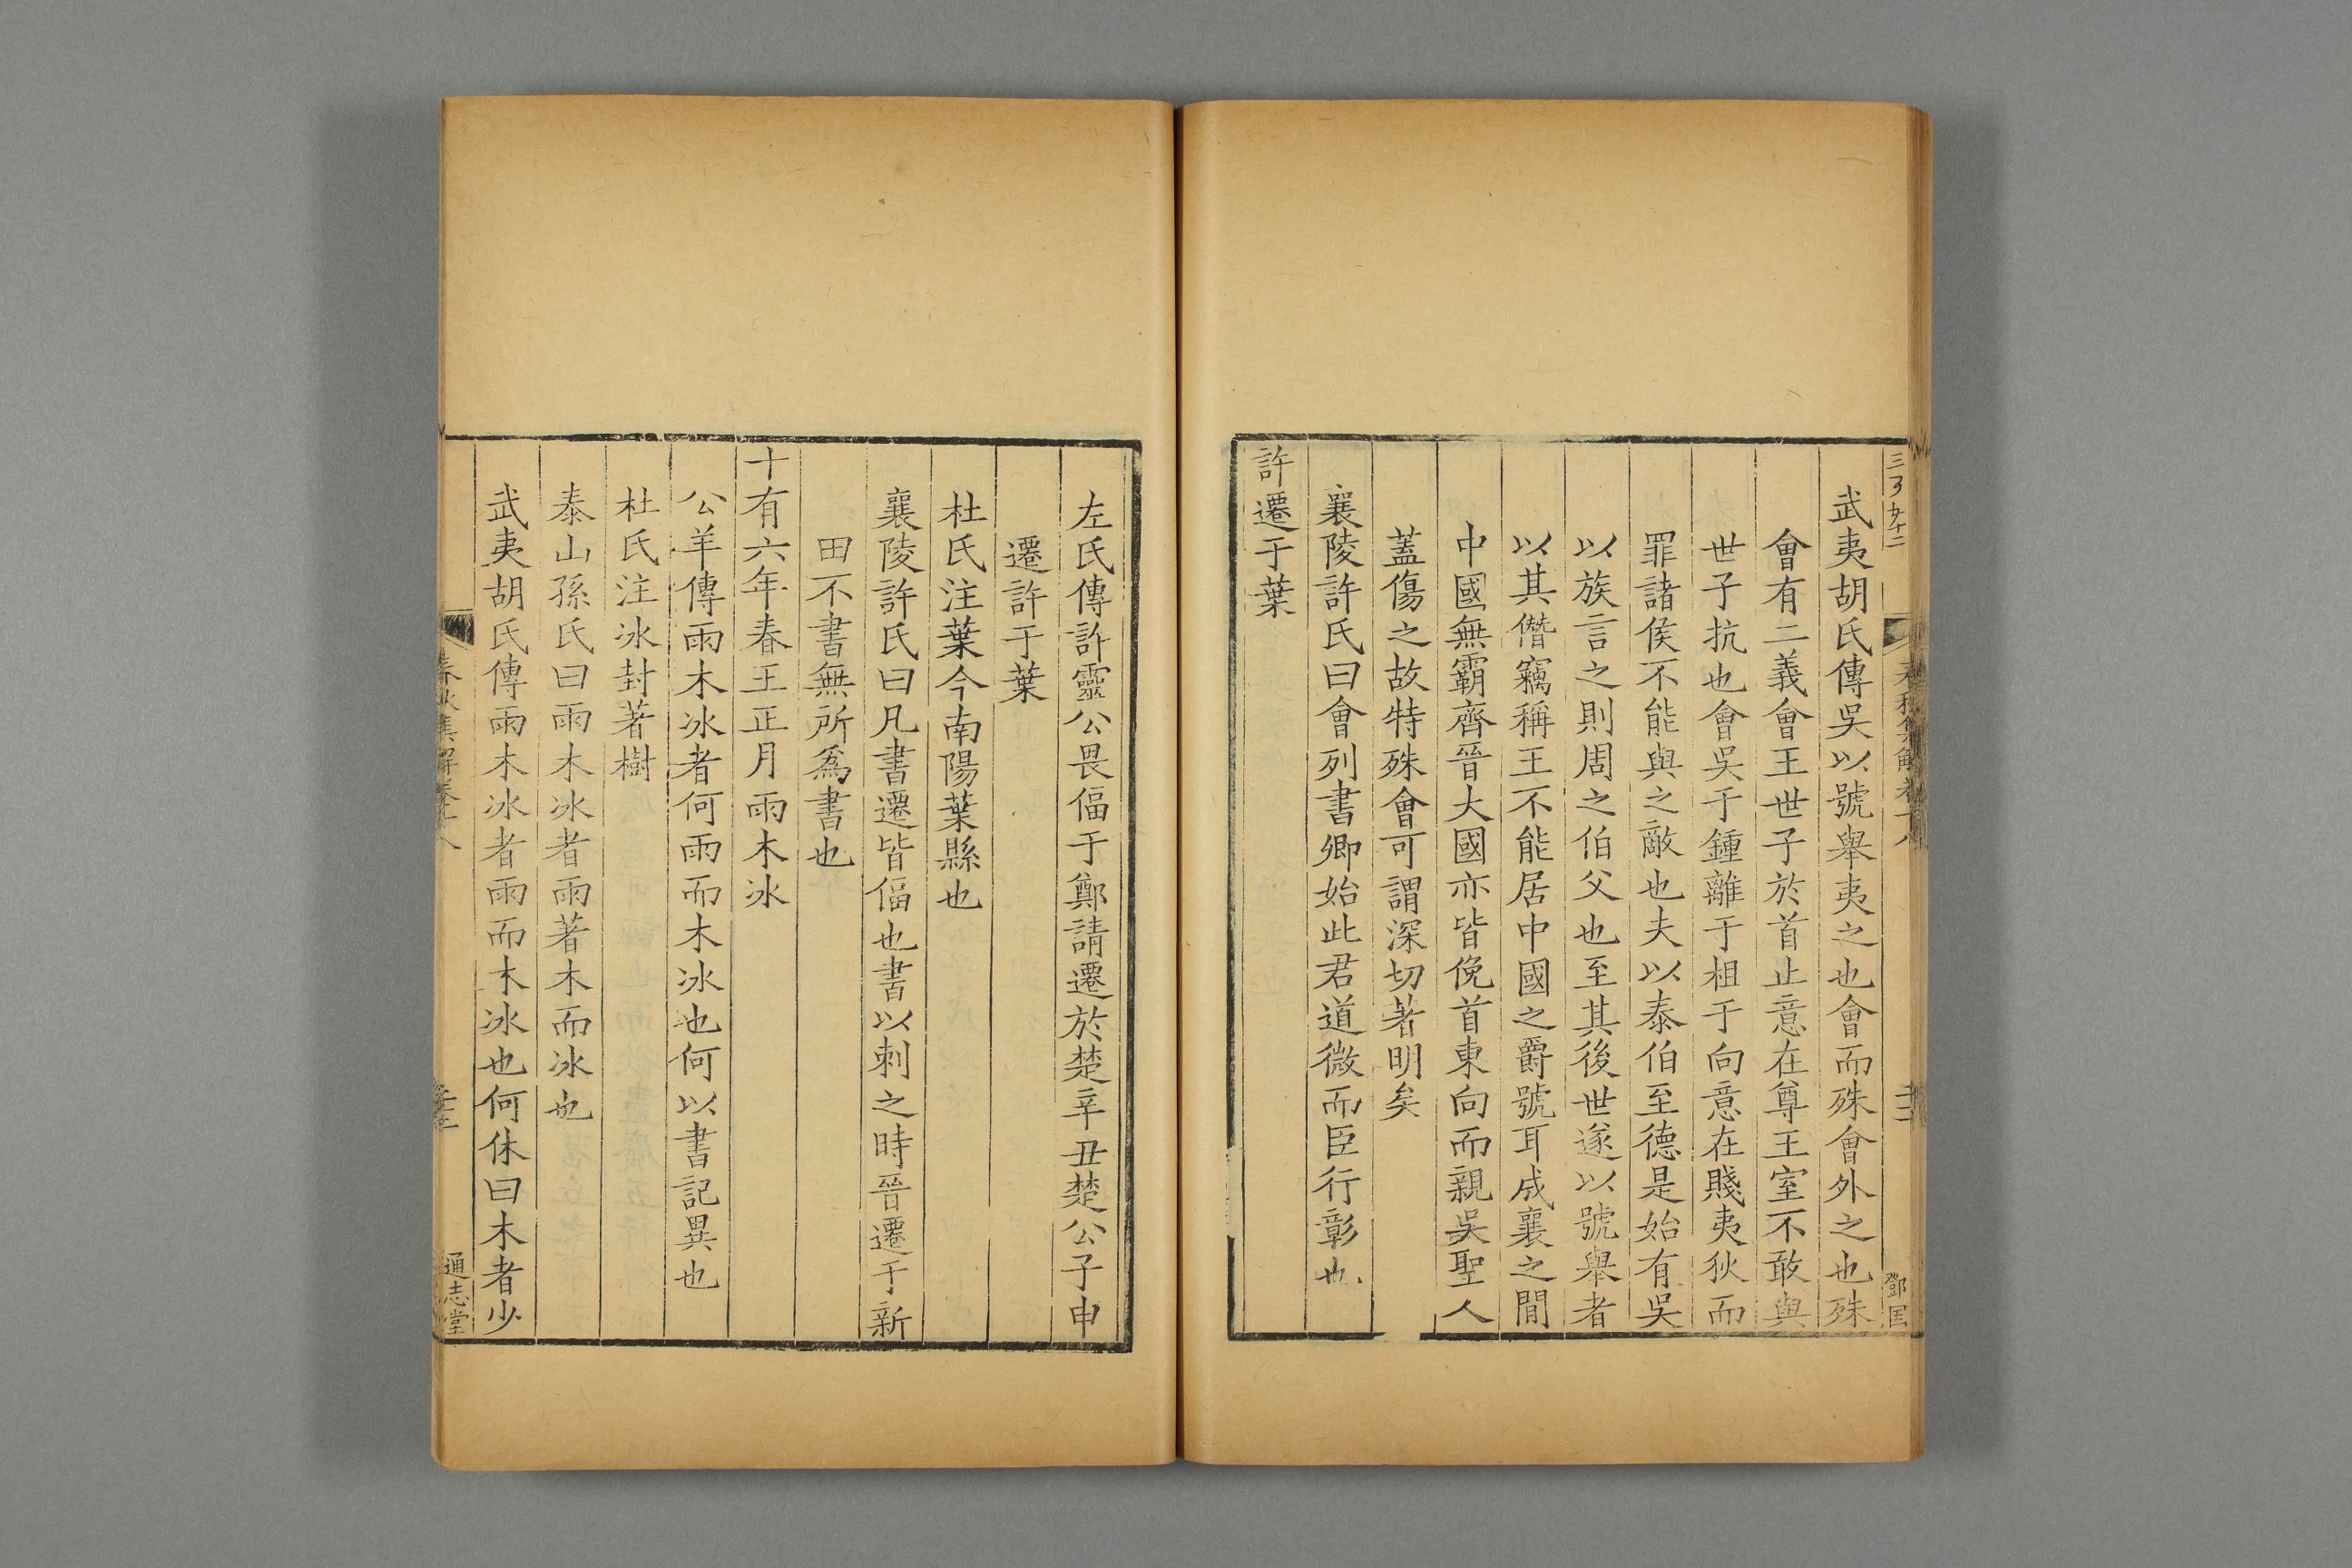 武夷胡氏傳吳以號舉夷之也會而殊會外之也殊
會有二義會王世子於首止意在尊王室不敢與
世子抗也會吳于鍾離于柤于向意在賤夷狄而
罪諸侯不能與之敵也夫以泰伯至德是始有吳
以族言之則周之伯父也至其後世遂以號舉者
以其僭竊稱王不能居中國之爵號耳成襄之閒
中國無霸齊晉大國亦皆俛首東向而親吳聖人
蓋傷之故特殊會可謂深切著明矣
襄陵許氏曰會列書卿始此君道微而臣行彰也
許遷于葉
左氏傳許靈公畏偪于鄭請遷於楚辛丑楚公子申
遷許于葉
杜氏注葉今南陽葉縣也
襄陵許氏曰凡書遷皆偪也書以刺之時晉遷于新
田不書無所爲書也
十有六年春王正月雨木冰
公羊傳雨木冰者何雨而木冰也何以書記異也
杜氏注冰封著樹
泰山孫氏曰雨木冰者雨著木而冰也
武夷胡氏傳雨木冰者雨而木冰也何休曰木者少
通志堂